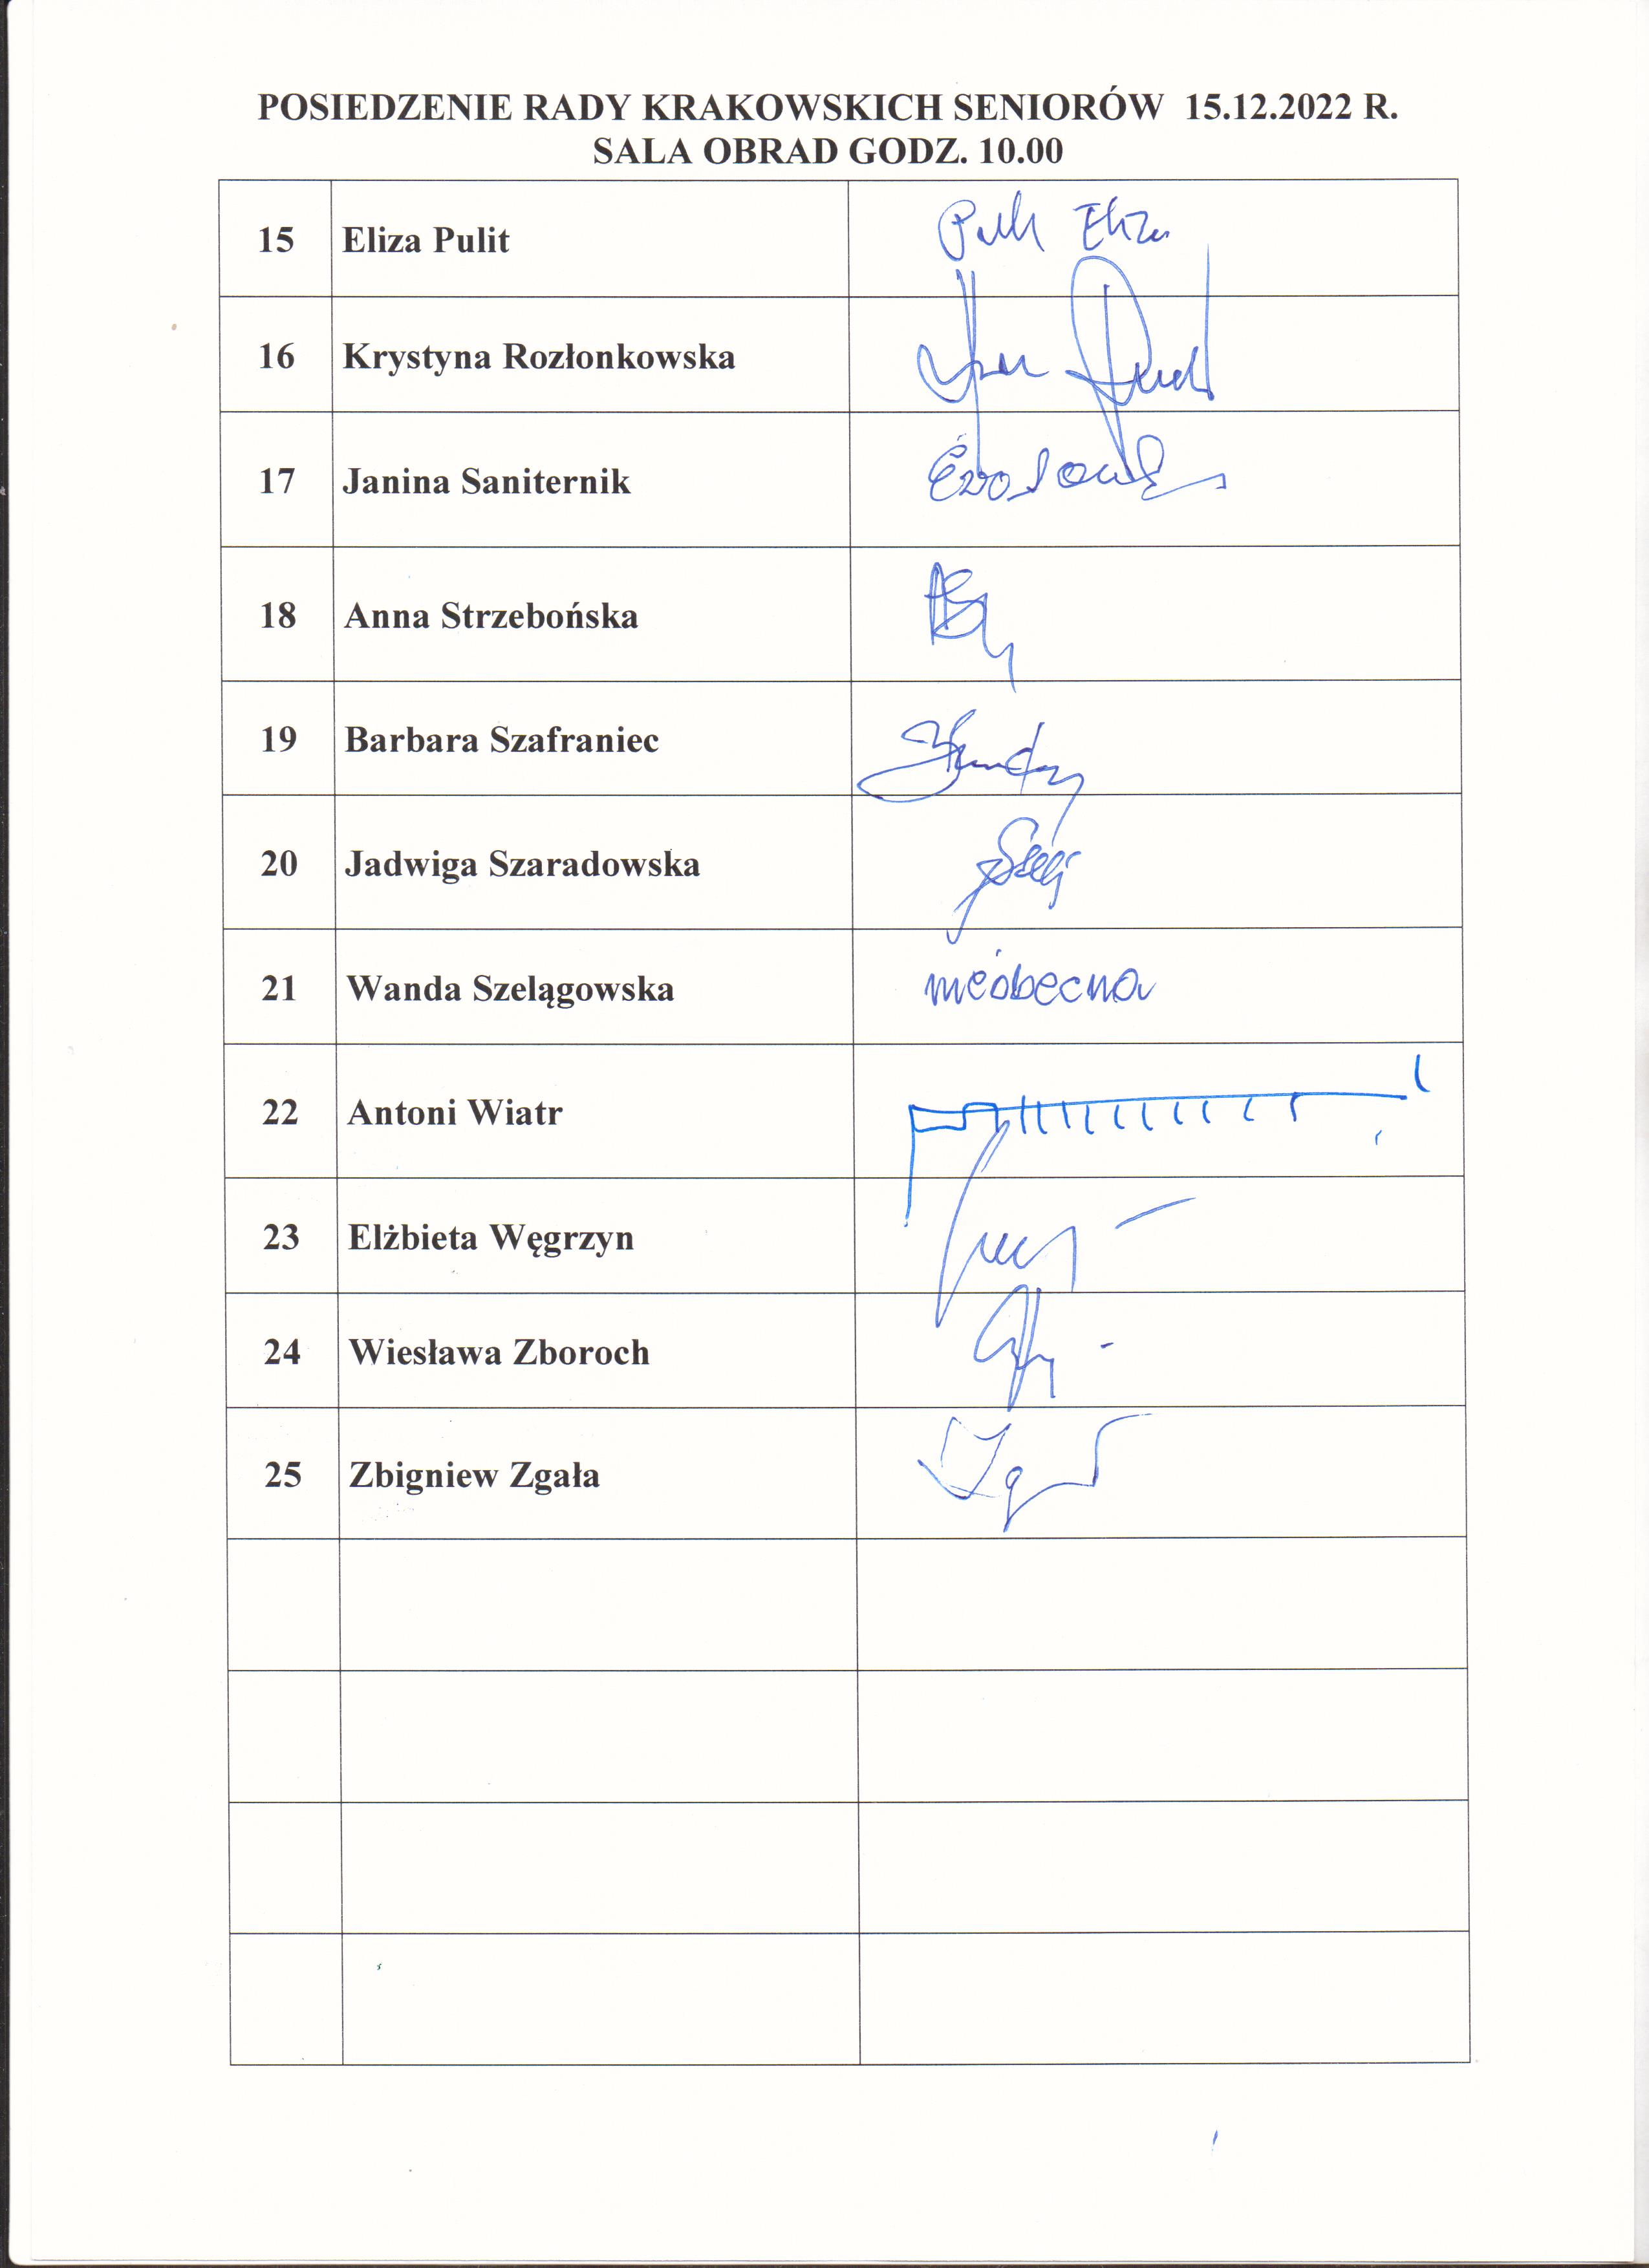 POSIEDZENIE RADY KRAKOWSKICH SENIORÓW 15.12.2022 R.
SALA OBRAD GODZ. 10.00
15 Eliza Pulit
16 Krystyna Rozłonkowska
17 Janina Saniternik
18 Anna Strzebońska
19 Barbara Szafraniec
20 Jadwiga Szaradowska
21 Wanda Szelągowska nieobecna
22 Antoni Wiatr
23 Elżbieta Węgrzyn
24 Wiesława Zboroch
25 Zbigniew Zgała